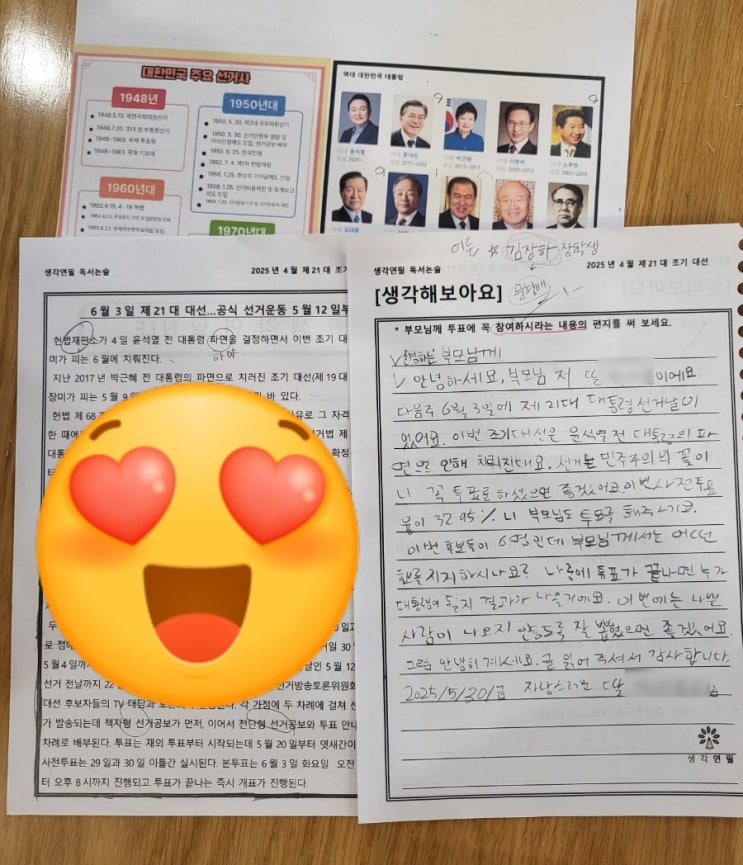 대한민국 주요 선거사
1948년
1948.5.10. 제헌국회의원선거
1948.7.20. 초대 정·부통령선거
1950년대
1950. 5. 30. 제2대 국회의원선거
1950. 6. 25. 한국전쟁
1952. 7. 4. 제1차 헌법개정
1960년대
1960.4.19. 4·19 혁명
1970년대
역대 대한민국 대통령
윤석열
문재인
2017~2022
박근혜
2013~2017
이명박
2008~2013
노무현
2003~2008
김대중
생각연필 독서논술
2025 년 4 월 제 21 대 조기
6 월 3 일 제 21 대 대선...공식 선거운동 5 월 12 일부
헌법재판소가 4 일 윤석열 전 대통령 파면을 결정하면서 이번 조기 대
미가 피는 6 월에 치뤄진다.
하야
지난 2017 년 박근혜 전 대통령의 파면으로 치러진 조기 대선(제 19 대
장미가 피는 5 월 9
바 있다.
헌법 제 68
유로 그 자격
한 때에
거법 제
대통
확정
두
로 정해
거일 30
5 월 4 일까지
날인 5 월 12
선거 전날까지 22
선거방송토론위원회
대선 후보자들의 TV 대담과
각 가정에 두 차례에 걸쳐 선
가 발송되는데 책자형 선거공보가 먼저, 이어서 전단형 선거공보와 투표 안내
차례로 배부된다. 투표는 재외 투표부터 시작되는데 5 월 20 일부터 엿새간이
사전투표는 29 일과 30 일 이틀간 실시된다. 본투표는 6 월 3 일 화요일 오전
터 오후 8 시까지 진행되고 투표가 끝나는 즉시 개표가 진행된다.
어른 ☆ 김장하 장학생
문형배
생각연필 독서논술
2025 년 4 월 제 21 대 조기 대선
[생각해보아요]
* 부모님께 투표에 꼭 참여하시라는 내용의 편지를 써 보세요.
부모님께
안녕하세요, 부모님 저 딸 이에요.
다음주 6월 3일에 제 21대 대통령선거날이
있어요. 이번 조기대선은 윤석열 전 대통령의 파
면으로 인해 치뤄진대요. 선거는 민주주의의 꽃이
니 꼭 투표를 하셨으면 좋겠어요. 이번 사전투표
율이 32.95% 니 부모님도 투표를 해주시고.
이번 후보들이 6명인데 부모님께서는 어떤
후보를 지지하시나요? 나중에 투표가 끝나면 누가
대통령이 될지 결과가 나올거에요. 이번에는 나쁜
사람이 나오지 않도록 잘 뽑혔으면 좋겠어요.
그럼 안녕히 계세요. 글 읽어 주셔서 감사합니다.
2025/5/30/금 자랑스러운 딸
생각연필